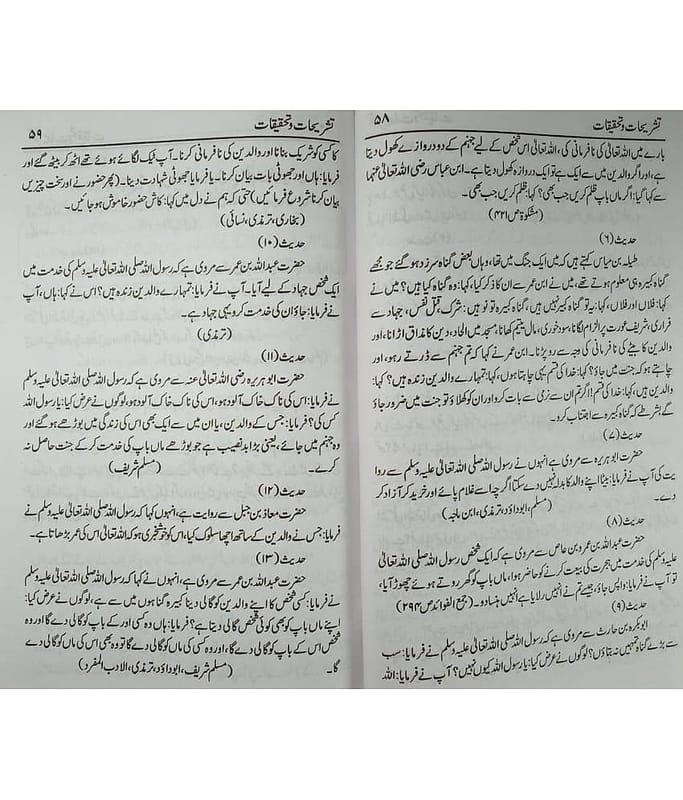 تشریحات و تحقیقات ۵۸
بارے میں اللہ تعالیٰ کی نافرمانی کی، اللہ تعالیٰ اس شخص کے لیے جہنم کے دو دروازے کھول دیتا
ہے، اور اگر والدین میں سے ایک ہے تو ایک دروازہ کھول دیتا ہے۔ ابن عباس رضی اللہ تعالیٰ عنہما
سے کہا گیا: اگر ماں باپ ظلم کریں جب بھی؟ کہا: ظلم کریں جب بھی۔
(مشکوٰۃ ص ۴۲۱)
حدیث (۶)
طیلہ بن میاس کہتے ہیں کہ میں ایک جنگ میں تھا، وہاں بعض گناہ سرزد ہو گئے جو مجھے
گناہ کبیرہ ہی معلوم ہوتے تھے، میں نے ابن عمر سے ان کا ذکر کیا، کہا: وہ گناہ کیا ہیں؟ میں نے
کہا: فلاں اور فلاں، کہا: یہ تو گناہ کبیرہ نہیں ہیں، گناہ کبیرہ تو نو ہیں: شرک، قتل نفس، جہاد سے
فراری، شریف عورت پر الزام لگانا، سود خوری، مال یتیم کھانا، مسجد میں الحاد، دین کا مذاق اڑانا، اور
والدین کا بیٹے کی نافرمانی کی وجہ سے رو پڑنا۔ ابن عمر نے کہا کہ تم جہنم سے ڈرتے رہو، اور
چاہتے ہو کہ جنت میں جاؤ؟ کہا: خدا کی قسم یہی چاہتا ہوں، کہا: تمہارے والدین زندہ ہیں؟ کہا:
والدین ہیں، کہا: خدا کی قسم! اگر تم ان سے نرمی سے بات کرو اور ان کو کھلاؤ تو جنت میں ضرور جاؤ
گے بشرطے کہ گناہ کبیرہ سے اجتناب کرو۔
حدیث (۷)
حضرت ابو ہریرہ سے مروی ہے انہوں نے رسول اللہ صلی اللہ تعالیٰ علیہ وسلم سے روا
یت کی آپ نے فرمایا: بیٹا اپنے والد کا بدلہ نہیں دے سکتا اگر چہ اسے غلام پائے اور خرید کر آزاد کر
دے۔ (مسلم، ابوداؤد، ترمذی، ابن ماجہ)
حدیث (۸)
حضرت عبداللہ بن عمرو بن عاص سے مروی ہے کہ ایک شخص رسول اللہ صلی اللہ تعالیٰ
علیہ وسلم کی خدمت میں ہجرت کی بیعت کرنے کو حاضر ہوا، ماں باپ کو گھر روتے ہوئے چھوڑ آیا،
تو آپ نے فرمایا: واپس جاؤ، جیسے تم نے انہیں رلایا ہے انہیں ہنسا دو۔ (جمع الفوائد ص ۲۹۴)
حدیث (۹)
ابوبکرہ بن حارث سے مروی ہے کہ رسول اللہ صلی اللہ تعالیٰ علیہ وسلم نے فرمایا: سب
سے بڑے گناہ تمہیں نہ بتاؤں؟ لوگوں نے عرض کیا: یا رسول اللہ کیوں نہیں؟ آپ نے فرمایا: اللہ
تشریحات و تحقیقات ۵۹
کا کسی کو شریک بنانا اور والدین کی نافرمانی کرنا۔ آپ ٹیک لگائے ہوئے تھے اٹھ کر بیٹھ گئے اور
فرمایا: ہاں اور جھوٹی بات بیان کرنا۔ یا فرمایا جھوٹی شہادت دینا۔ (پھر حضور نے اور سخت چیزیں
بیان کرنا شروع فرمائیں) حتیٰ کہ ہم نے دل میں کہا: کاش حضور خاموش ہو جائیں۔
(بخاری، ترمذی، نسائی)
حدیث (۱۰)
حضرت عبداللہ بن عمر سے مروی ہے کہ رسول اللہ صلی اللہ تعالیٰ علیہ وسلم کی خدمت میں
ایک شخص جہاد کے لیے آیا۔ آپ نے فرمایا: تمہارے والدین زندہ ہیں؟ اس نے کہا: ہاں، آپ
نے فرمایا: جاؤ ان کی خدمت کرو یہی جہاد ہے۔
(ترمذی)
حدیث (۱۱)
حضرت ابو ہریرہ رضی اللہ تعالیٰ عنہ سے مروی ہے کہ رسول اللہ صلی اللہ تعالیٰ علیہ وسلم
نے فرمایا: اس کی ناک خاک آلود ہو، اس کی ناک خاک آلود ہو، لوگوں نے عرض کیا: یا رسول اللہ
کس کی؟ فرمایا: جس کے والدین، یا ان میں سے ایک بھی اس کی زندگی میں بوڑھے ہو گئے اور
وہ جہنم میں جائے، یعنی بڑا بدنصیب ہے جو بوڑھے ماں باپ کی خدمت کر کے جنت حاصل نہ
کرے۔ (مسلم شریف)
حدیث (۱۲)
حضرت معاذ بن جبل سے روایت ہے، انہوں نے کہا کہ رسول اللہ صلی اللہ تعالیٰ علیہ وسلم نے
فرمایا: جس نے والدین کے ساتھ اچھا سلوک کیا، اس کو خوشخبری ہو کہ اللہ تعالیٰ اس کی عمر بڑھاتا ہے۔
حدیث (۱۳)
حضرت عبداللہ بن عمر سے مروی ہے، انہوں نے کہا کہ رسول اللہ صلی اللہ تعالیٰ علیہ وسلم
نے فرمایا: کسی شخص کا اپنے والدین کو گالی دینا کبیرہ گناہوں میں سے ہے، لوگوں نے عرض کیا:
اپنے ماں باپ کو بھی کوئی شخص گالی دیتا ہے؟ فرمایا: ہاں وہ کسی اور کے باپ کو گالی دے گا اور وہ
شخص اس کے باپ کو گالی دے گا، اور وہ کسی کی ماں کو گالی دے گا تو وہ بھی اس کی ماں کو گالی دے
گا۔ (مسلم شریف، ابوداؤد، ترمذی، الادب المفرد)